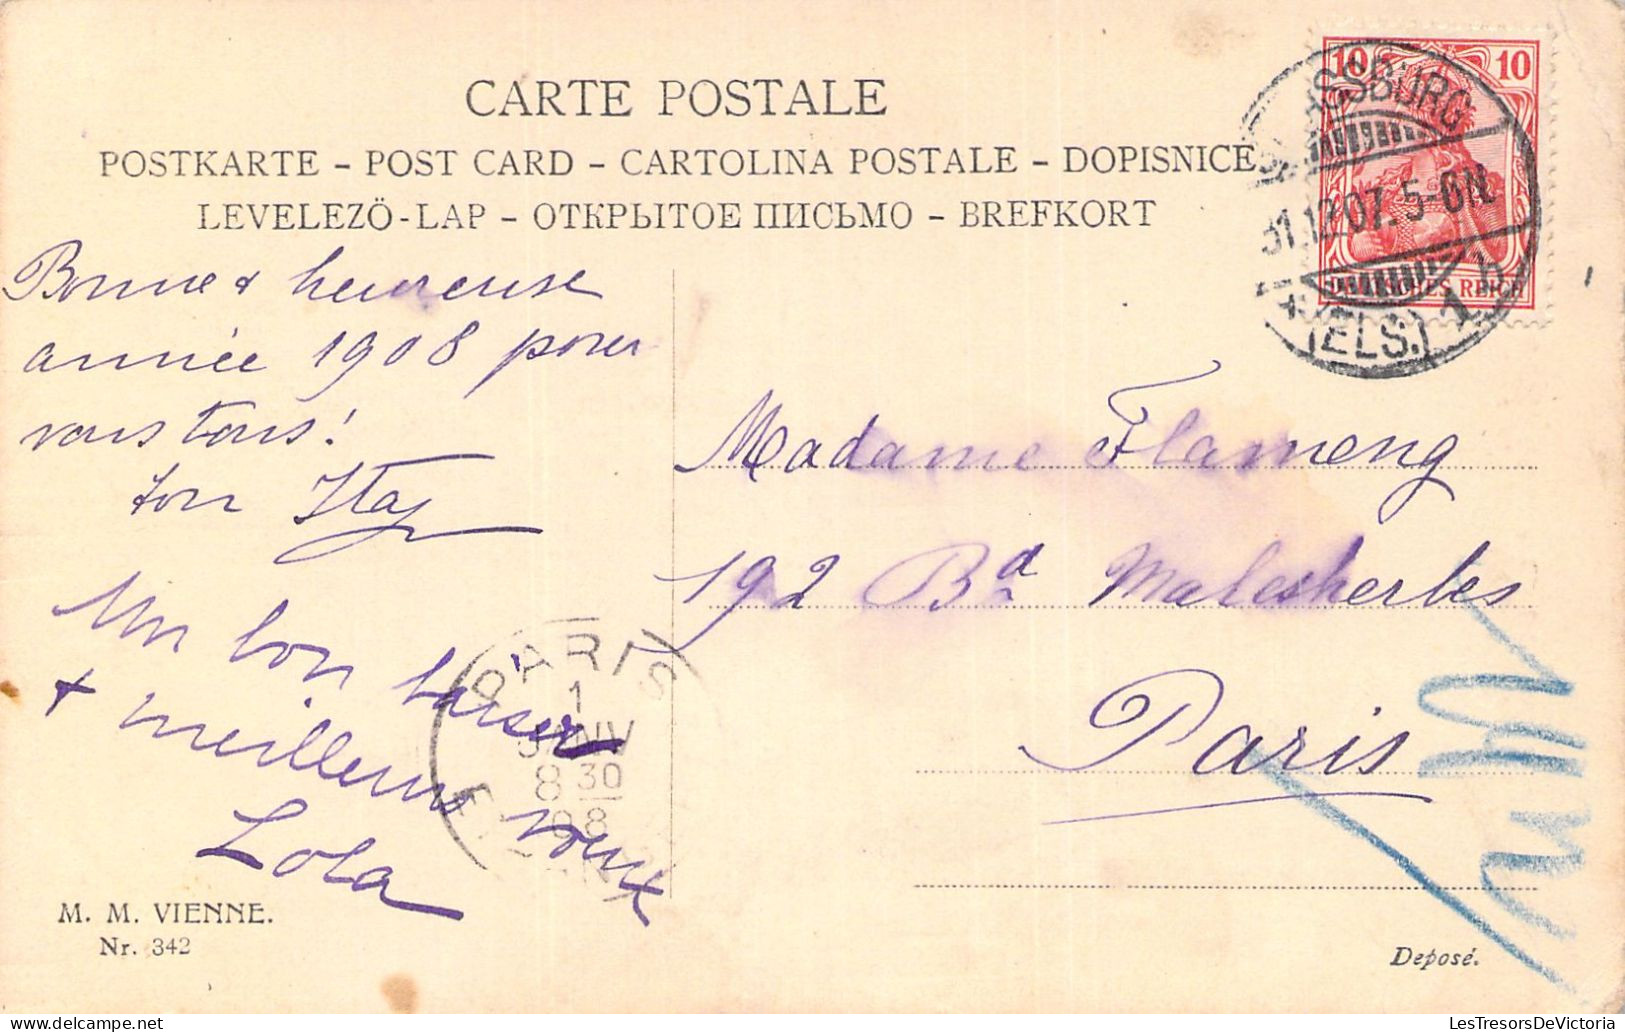 CARTE POSTALE
POSTKARTE – POST CARD – CARTOLINA POSTALE – DOPISNICE
LEVELEZÖ-LAP – ОТКРЫТОЕ ПИСЬМО – BREFKORT
10 10
DEUTSCHES REICH
STRASSBURG
31.12.07. 5-6N.
(ELS.) 1 b
Bonne & heureuse
année 1908 pour
vous tous!
ton
Un bon baiser
& meilleurs voeux
Lola
PARIS
1
JANV
8 30
08
Madame Flameng
192 Bd Malesherbes
Paris
M. M. VIENNE.
Nr. 342
Deposé.
LesTresorsDeVictoria